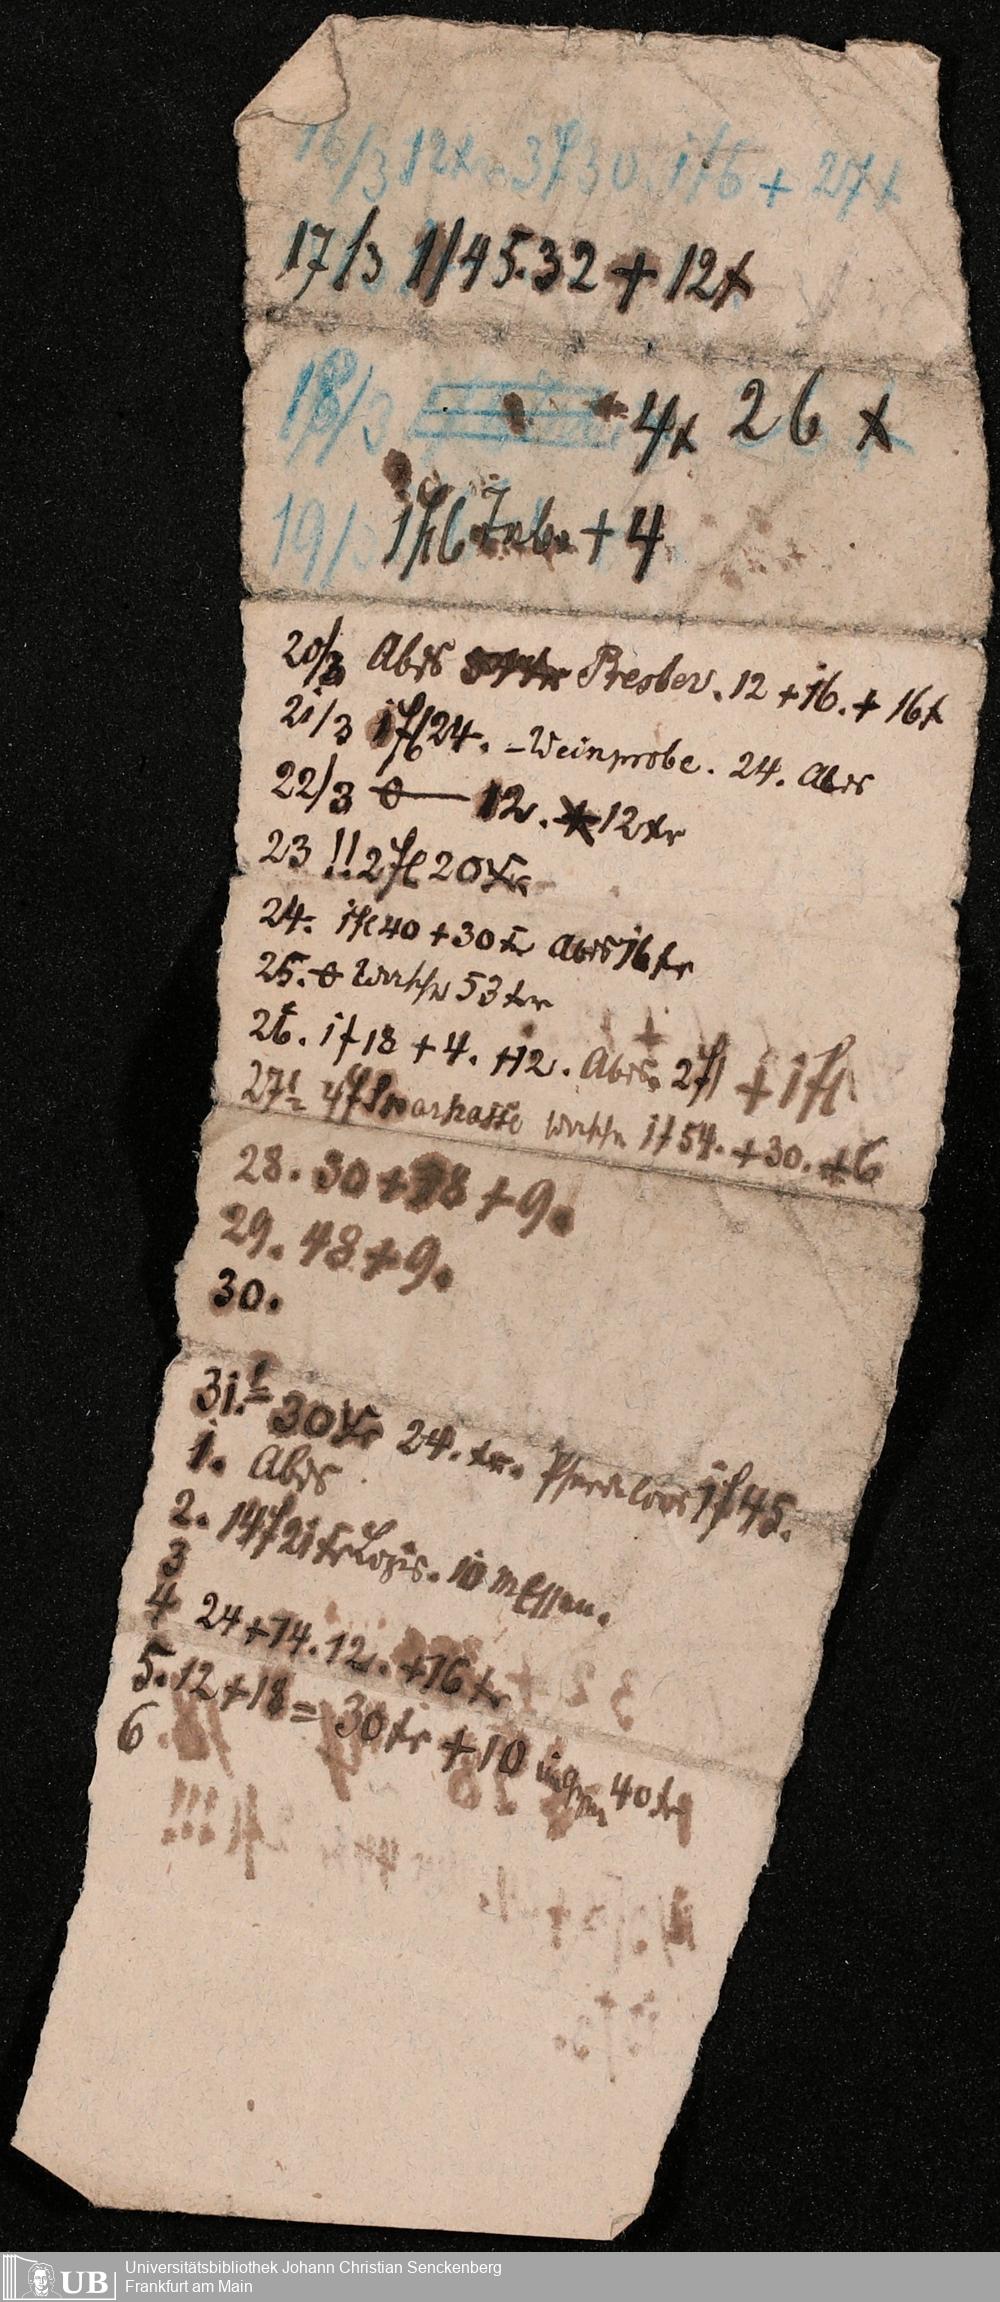 16/3 12x. 3f30. 1f6 + 27x
17/3 1f45.32 + 12x
18/3 4x 26 x
19/3 1fl6 + 4
20/3 Abds Presber. 12 + 16. + 16x
21/3 1fl24. – Weinprobe. 24. Abds
22/3 0 — 12. + 12xr
23 !! 2fl 20xr
24. 1fl40 + 30xr Abds 16xr
25. 0 53xr
26. 1f18 + 4. +12. Abds. 2fl + 1fl
27! 4f Sparkasse 1f54. +30. +6
28. 30 + 18 + 9.
29. 48 + 9.
30.
31.! 30xr 24.xr. Pferdeloos 1f45.
1. Abds
2. 14f21xr Logis. 10 Messen.
3
4 24 + 14. 12. +16xr
5. 12 + 18 = 30xr + 10 40xr
6
Universitätsbibliothek Johann Christian Senckenberg
Frankfurt am Main
UB